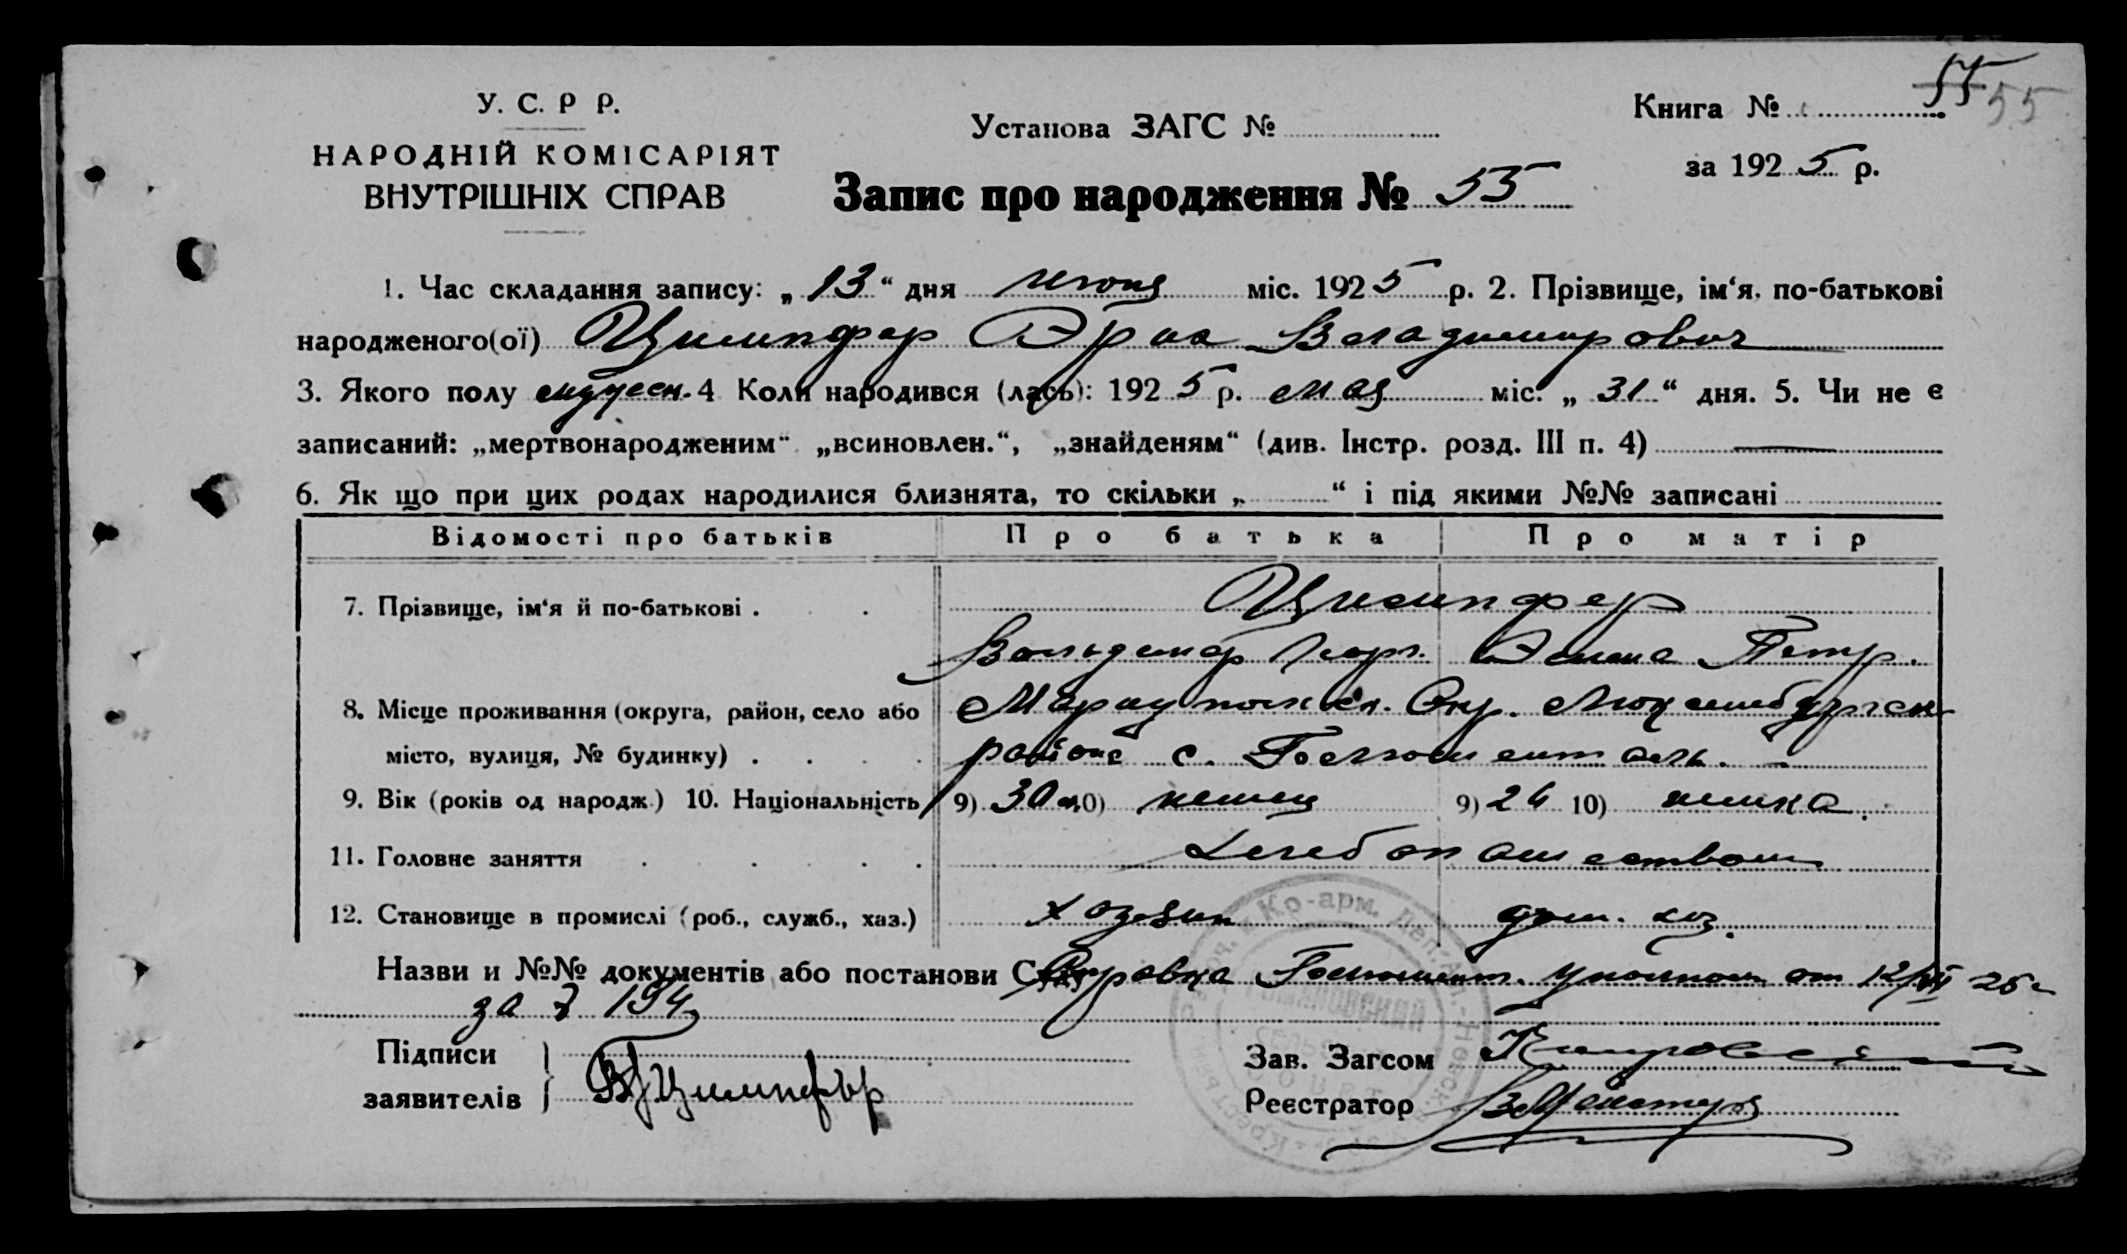 55 55
У. С. Р Р.
НАРОДНІЙ КОМІСАРІЯТ
ВНУТРІШНІХ СПРАВ
Установа ЗАГС №
Книга №
за 1925 р.
Запис про народження № 55
1. Час складання запису: „13“ дня июня міс. 1925 р. 2. Прізвище, ім‘я, по-батькові
народженого(ої) Цимпфер Владимирович
3. Якого полу мужеск. 4 Коли народився (лась): 1925 р. мая міс. „31“ дня. 5. Чи не є
записаний: „мертвонародженим“ „всиновлен.“, „знайденям“ (див. Інстр. розд. III п. 4)
6. Як що при цих родах народилися близнята, то скільки „ “ і під якими №№ записані
Відомості про батьків Про батька Про матір
7. Прізвище, ім‘я й по-батькові . . Цимпфер
Вольдемар Петр.
8. Місце проживання (округа, район, село або Мариупольск. Окр. Люксембургск
місто, вулиця, № будинку) . . . . районе с.
9. Вік (років од народж.) 10. Національність 9) 30 10) немец 9) 24 10) немка
11. Головне заняття . . . . . Хлебопашеством
12. Становище в промислі (роб., служб., хаз.) хозяин дом. хоз.
Назви и №№ документів або постанови Суду Справка от 12/VI 25 г
за № 194
Підписи
заявителів } Цимпфер
Зав. Загсом
Реєстратор